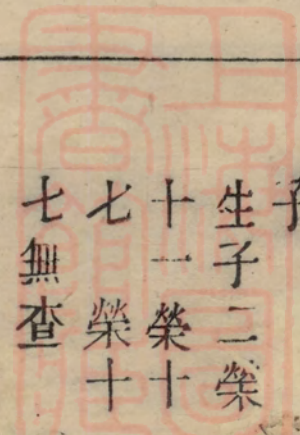 子
生子二榮
十一榮十
七 榮十
七無查